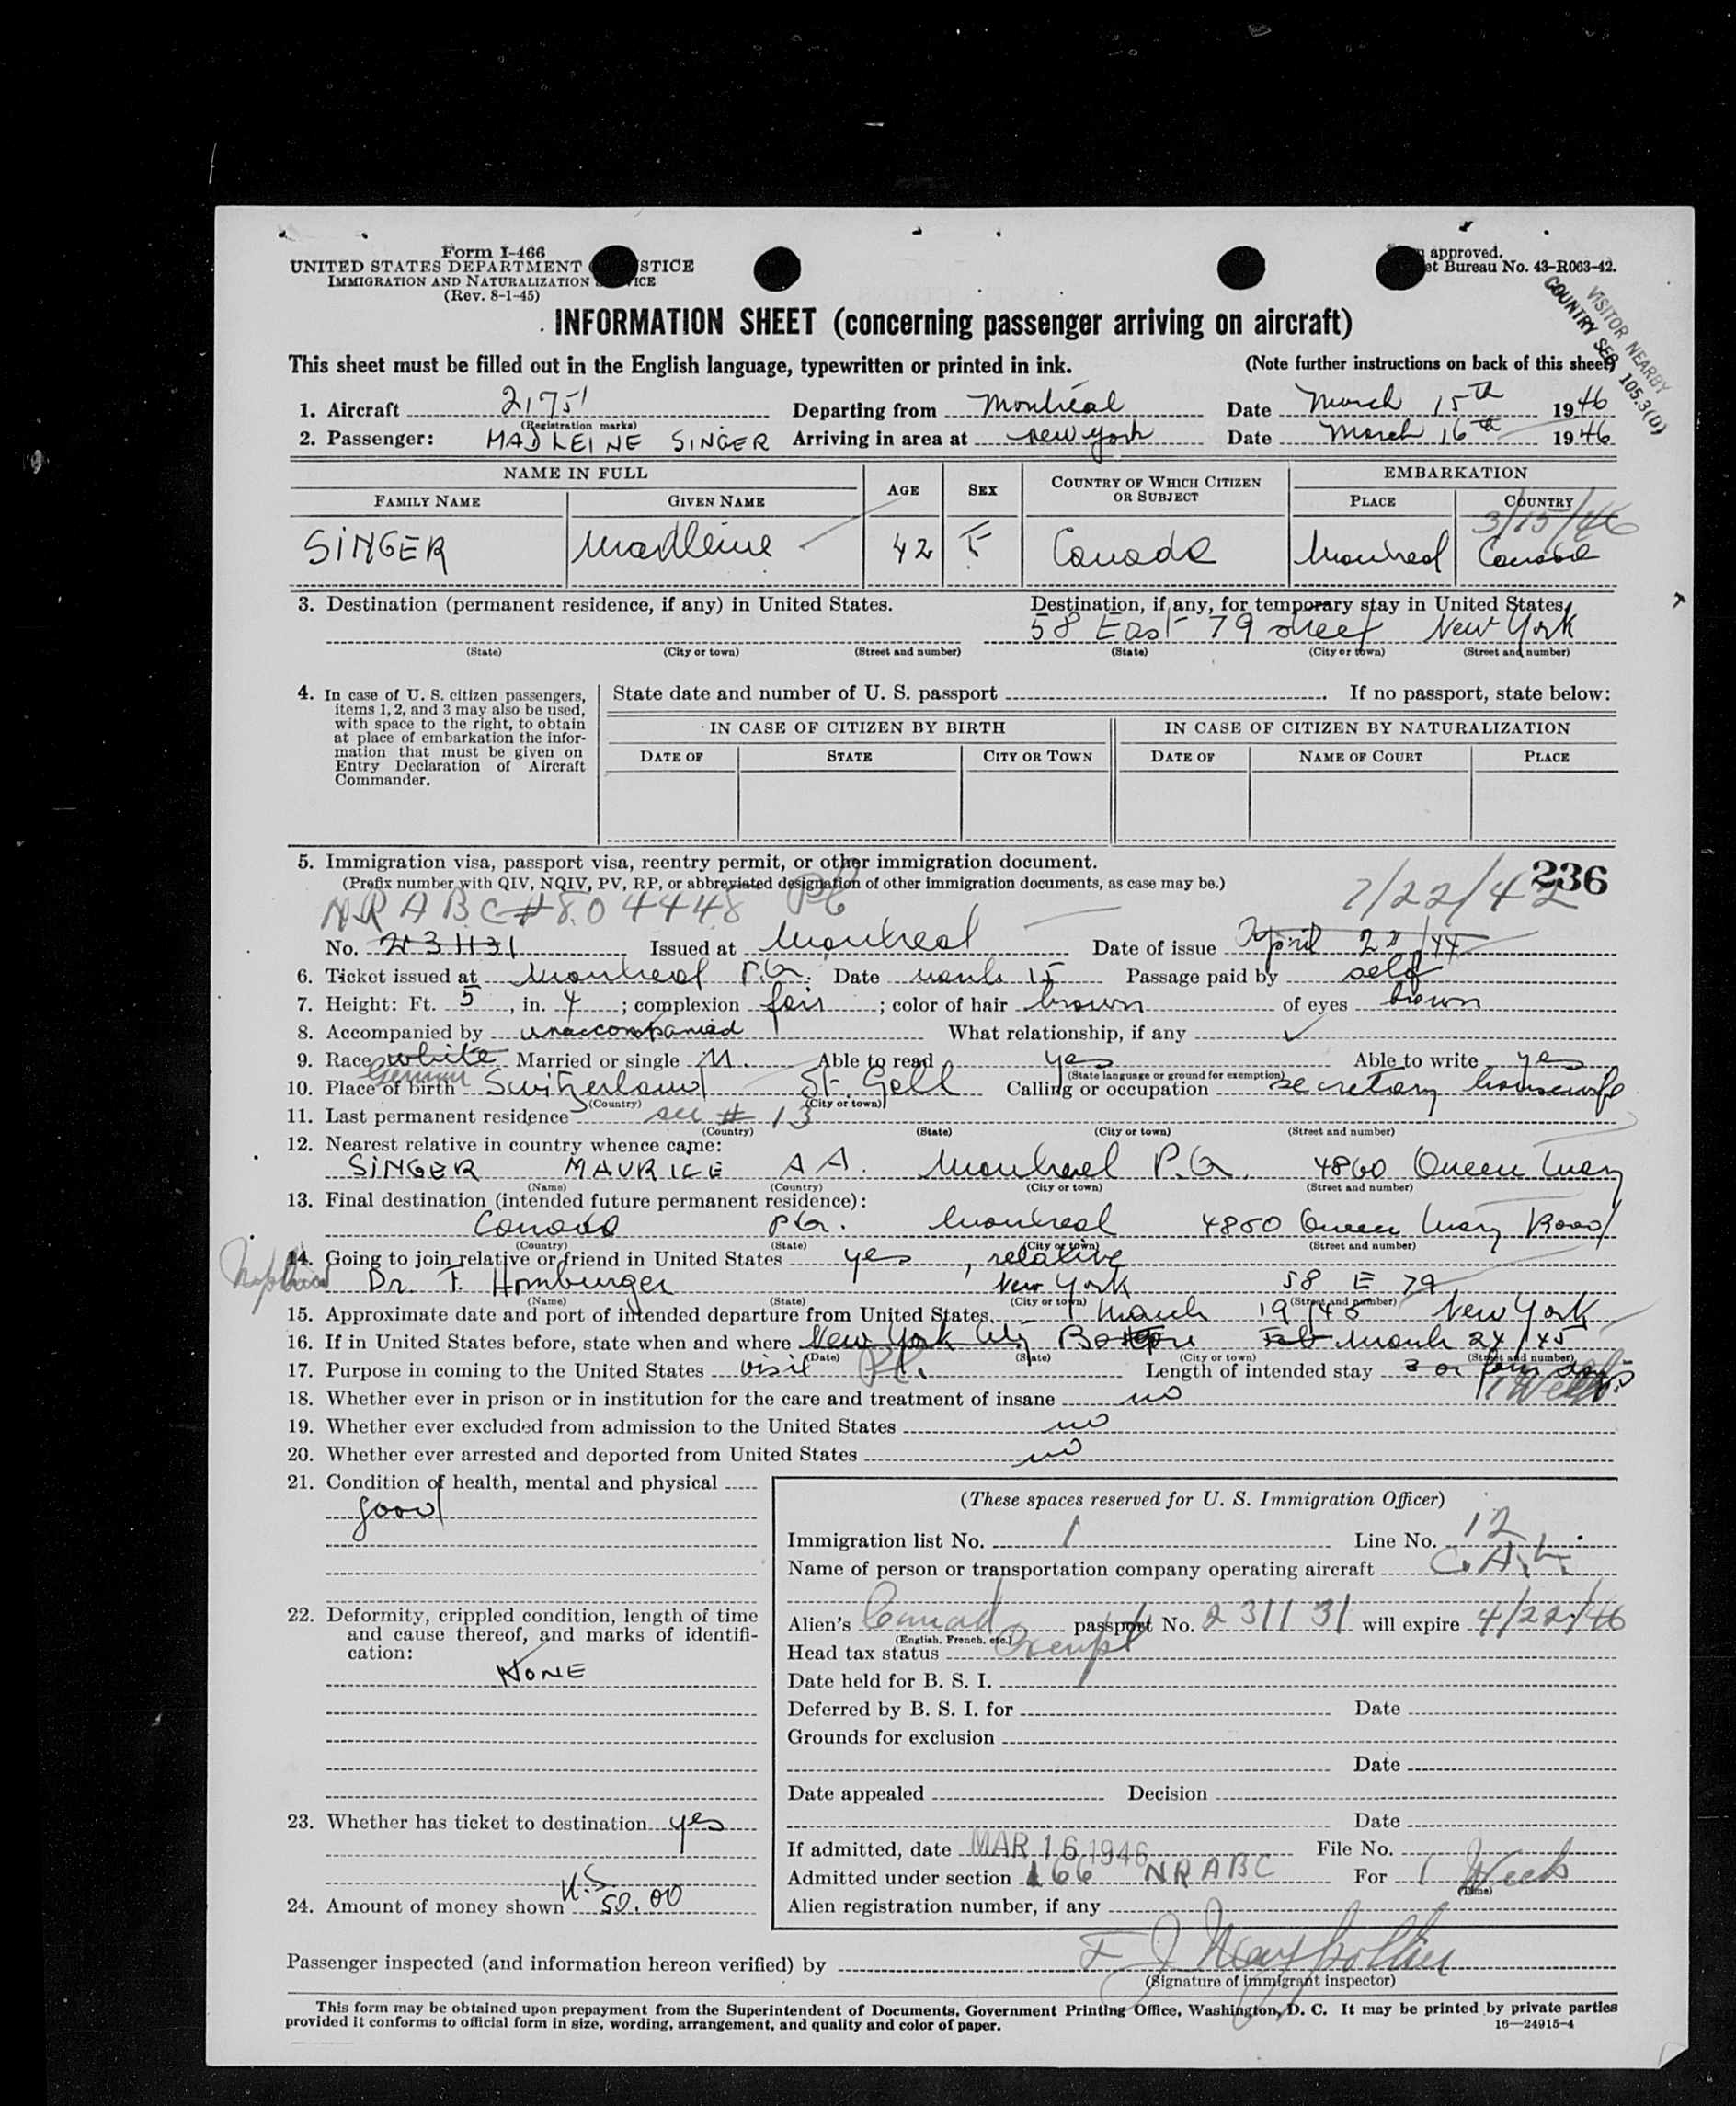 Form I-466
UNITED STATES DEPARTMENT STICE
IMMIGRATION AND NATURALIZATION VICE
(Rev. 8-1-45)
approved.
et Bureau No. 43-R063-42.
VISITOR NEARBY
COUNTRY SEC 105.3(0)
INFORMATION SHEET (concerning passenger arriving on aircraft)
This sheet must be filled out in the English language, typewritten or printed in ink. (Note further instructions on back of this sheet)
1. Aircraft 2175 Departing from Montreal Date March 15th 1946
(Registration marks)
2. Passenger: MADLEINE SINGER Arriving in area at New York Date March 16th 1946
NAME IN FULL AGE SEX COUNTRY OF WHICH CITIZEN OR SUBJECT EMBARKATION
FAMILY NAME GIVEN NAME PLACE COUNTRY
3/15/46
SINGER Madleine 42 F Canada Montreal Canada
3. Destination (permanent residence, if any) in United States. Destination, if any, for temporary stay in United States.
58 East 79 street New York
(State) (City or town) (Street and number) (State) (City or town) (Street and number)
4. In case of U. S. citizen passengers, items 1, 2, and 3 may also be used, with space to the right, to obtain at place of embarkation the information that must be given on Entry Declaration of Aircraft Commander.
State date and number of U. S. passport . If no passport, state below:
IN CASE OF CITIZEN BY BIRTH IN CASE OF CITIZEN BY NATURALIZATION
DATE OF STATE CITY OR TOWN DATE OF NAME OF COURT PLACE
5. Immigration visa, passport visa, reentry permit, or other immigration document.
236
(Prefix number with QIV, NQIV, PV, RP, or abbreviated designation of other immigration documents, as case may be.)
NRABC #804448 Pt 7/22/42
No. 231131 Issued at Montreal Date of issue April 22/44
6. Ticket issued at Montreal P.Q. Date March 15 Passage paid by self
7. Height: Ft. 5, in. 4; complexion fair; color of hair brown of eyes brown
8. Accompanied by unaccompanied What relationship, if any
9. Race white Married or single M. Able to read yes Able to write yes
German (State language or ground for exemption)
10. Place of birth Switzerland St Gall Calling or occupation secretary housewife
(Country) (City or town)
11. Last permanent residence see # 13
(Country) (State) (City or town) (Street and number)
12. Nearest relative in country whence came:
SINGER MAURICE A A. Montreal P.Q. 4860 Queen Mary
(Name) (Country) (City or town) (Street and number)
13. Final destination (intended future permanent residence):
Canada P.Q. Montreal 4850 Queen Mary Road
(Country) (State) (City or town) (Street and number)
14. Going to join relative or friend in United States yes, relative
Dr. F. Homburger New York 58 E 79
(Name) (State) (City or town) (Street and number)
15. Approximate date and port of intended departure from United States March 19/46 New York
16. If in United States before, state when and where New York City March 24/45
(Date) (State) (City or town) (Street and number)
17. Purpose in coming to the United States visit Pl. Length of intended stay 3 or four days
1 Week
18. Whether ever in prison or in institution for the care and treatment of insane no
19. Whether ever excluded from admission to the United States no
20. Whether ever arrested and deported from United States no
21. Condition of health, mental and physical
good
22. Deformity, crippled condition, length of time and cause thereof, and marks of identification:
NONE
23. Whether has ticket to destination yes
24. Amount of money shown U.S. 50.00
(These spaces reserved for U. S. Immigration Officer)
Immigration list No. 1 Line No. 12
Name of person or transportation company operating aircraft C.A.L.
Alien's Canad passport No. 231131 will expire 4/22/46
(English, French, etc.)
Head tax status Exempt
Date held for B. S. I.
Deferred by B. S. I. for Date
Grounds for exclusion
Date
Date appealed Decision
Date
If admitted, date MAR 16 1946 File No.
Admitted under section 166 NRABC For 1 Week
(Time)
Alien registration number, if any
Passenger inspected (and information hereon verified) by
(Signature of immigrant inspector)
This form may be obtained upon prepayment from the Superintendent of Documents, Government Printing Office, Washington, D. C. It may be printed by private parties
provided it conforms to official form in size, wording, arrangement, and quality and color of paper. 16—24915-4